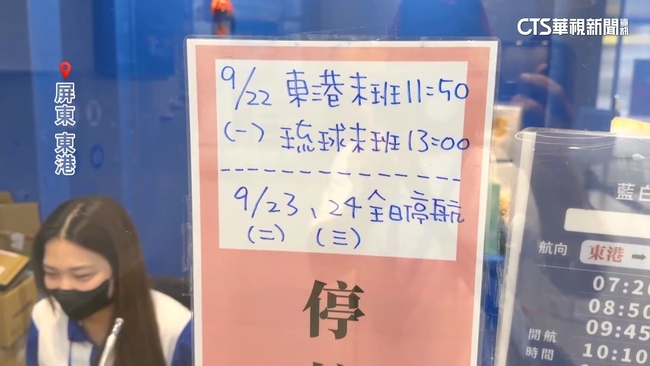 CTS華視新聞資訊
屏東 東港
9/22 東港末班11:50
(一) 琉球末班13:00
9/23、24全日停航
(二) (三)
停
藍白
航向 東港
07:20
08:50
09:45
開航時間 10:10